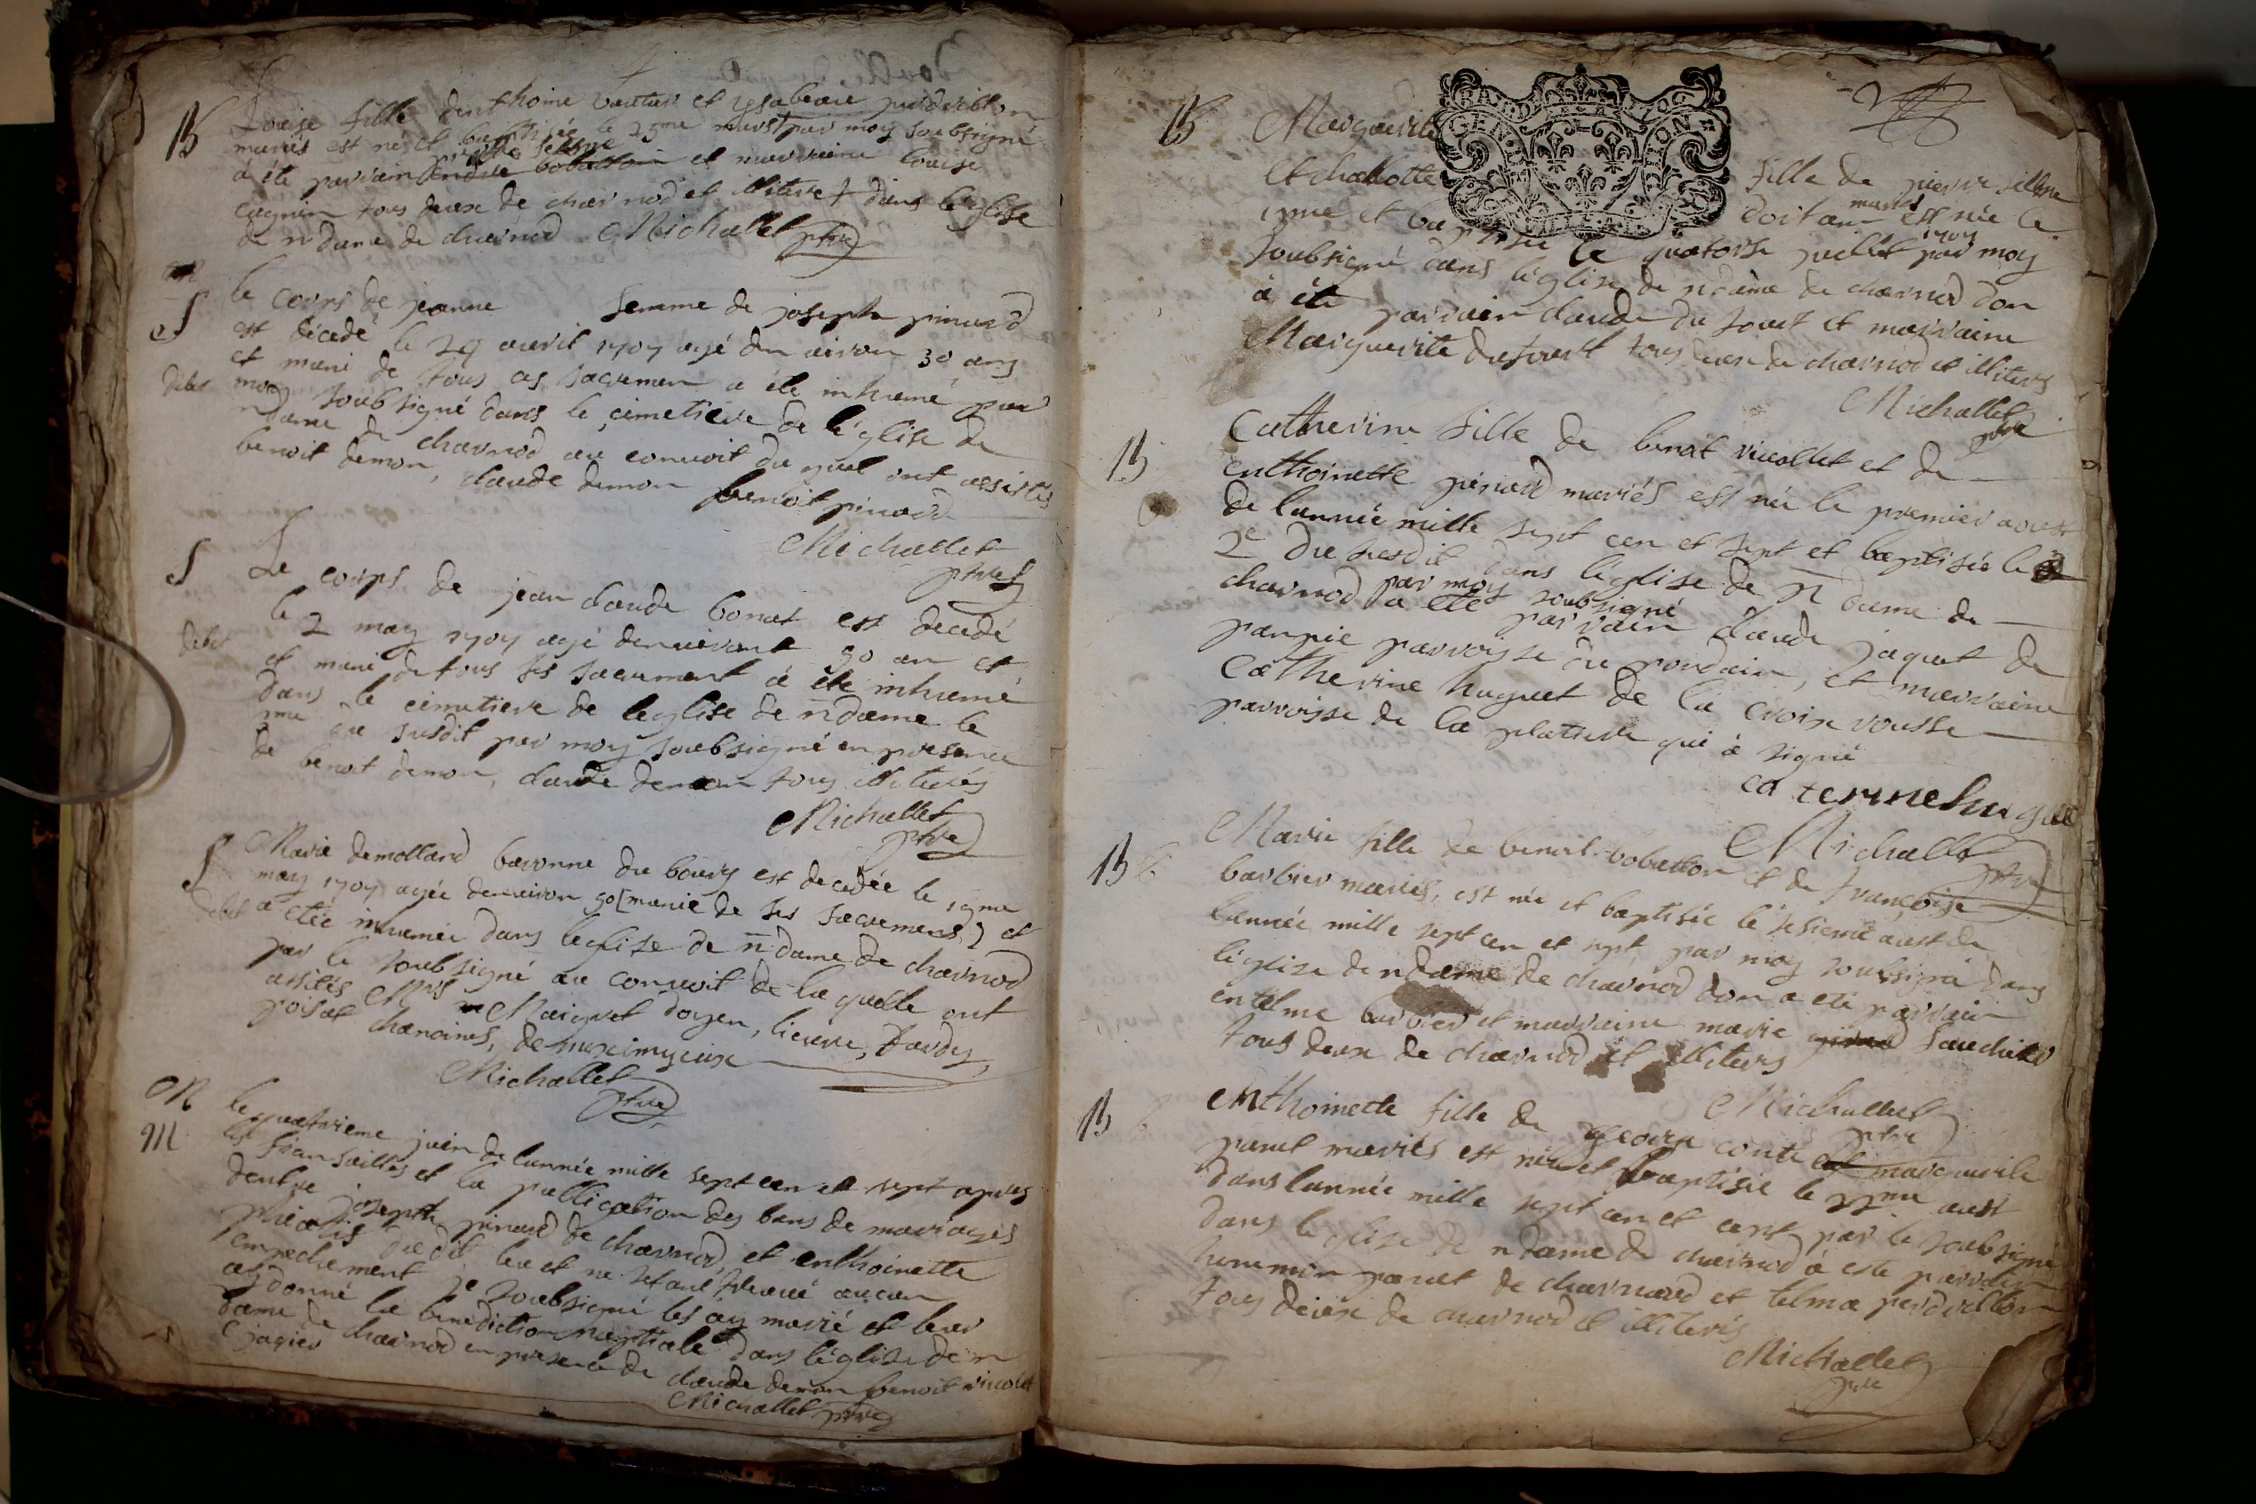 B
Louise fille denthoine vautier et ysabeau perdrillon
mariés est né et baptisée le 25me marst par moy soubsigné
à été parrain andre bobatton et marraine louise
cagnin tous deux de charnod et illiteres dans leglise
de n dame de charnod Michallet ptre
S
le corps de jeanne femme de joseph pinard
est décedé le 29 auril 1707 agé denuiron 30 ans
et muni de tous ces sacremen a été inhumé par
debet
moy soubsigné dans le cimetiere de l'église de
n dame de charnod au conuoit du quel ont assistés
benoit demon, claude demon benoit pinard
Michallet
ptre
S
Le corps de jean claude bonat est decedé
le 2 may 1707 agé denuiront 50 an et
debet
et muni de tous ses sacrement à été inhumé
dans le cimetiere de leglise de n dame le
me du susdit par moy soubsigné en presence
de benoit demon, claude demon tous illiterés
Michallet
ptre
S
Marie demolland baronne du bourg est decedée le 19me
may 1707 agée denuiron 50 [munie de ses sacremens] et
debet
a etée inhumée dans leglise de n dame de charnod
par le soubsigné au conuoit de la quelle ont
assités Mrs Maignet doyen, lieure, Dardes,
poisat chanoines, de meximyeux
Michallet
ptre
M
M
le quatrieme juin de lannée mille sept cen et sept apres
les fiansailles et la publication des bans de mariages
dentre joseph pinard de charnod, et enthoinette
du dit lieu et ne sétant trouué aucun
empechement je soubsigné les ay marié et leur
ay donné la benediction nuptiale dans l'église de n
dame de charnod en presence de claude demon benoit nicolet
jagier Michallet ptre
B
Marguerite
GEN
fille de pierre sillane
et charlotte doitaue mariés est née le
me et baptisée le quatorse juillet 1707 par moy
soubsigné dans léglise de n dame de charnod don
à été parrain claude du fourt et marraine
Marguerite dufourt tous deux de charnod et illiters
Michallet
ptre
B
Catherine fille de benoit nicollet et de
enthoinette pinard mariés est née le premier aoust
de lannée mille sept cen et sept et baptisée le
2e du susdit dans léglise de n dame de
charnod par moy soubsigné
a été parrain claude jaquet de
parroisse du pondain, et marraine
Catherine huguet de la croix rousse
parroisse de la platiere qui à signé
caterine hugue
Michallet
ptre
B
Marie fille de benoit bobatton et de françoise
barbier mariés, est née et baptisée lé sesieme aust de
lannée mille sept cen et sept par moy soubsigné dans
léglise de n dame de charnod don a eté parrain
entelme barbier et marraine marie fauchard
tous deux de charnod et illiters
Michallet
ptre
B
Enthoinette fille de george conte et marguerite
parret mariés est née et baptisée le me aust
dans lannée mille sept cen et cept par le soubsigné
dans leglise de n dame de charnod à este parrain
parret de charnod et telma perdrillon
tous deux de charnod et illiterés
Michallet
ptre